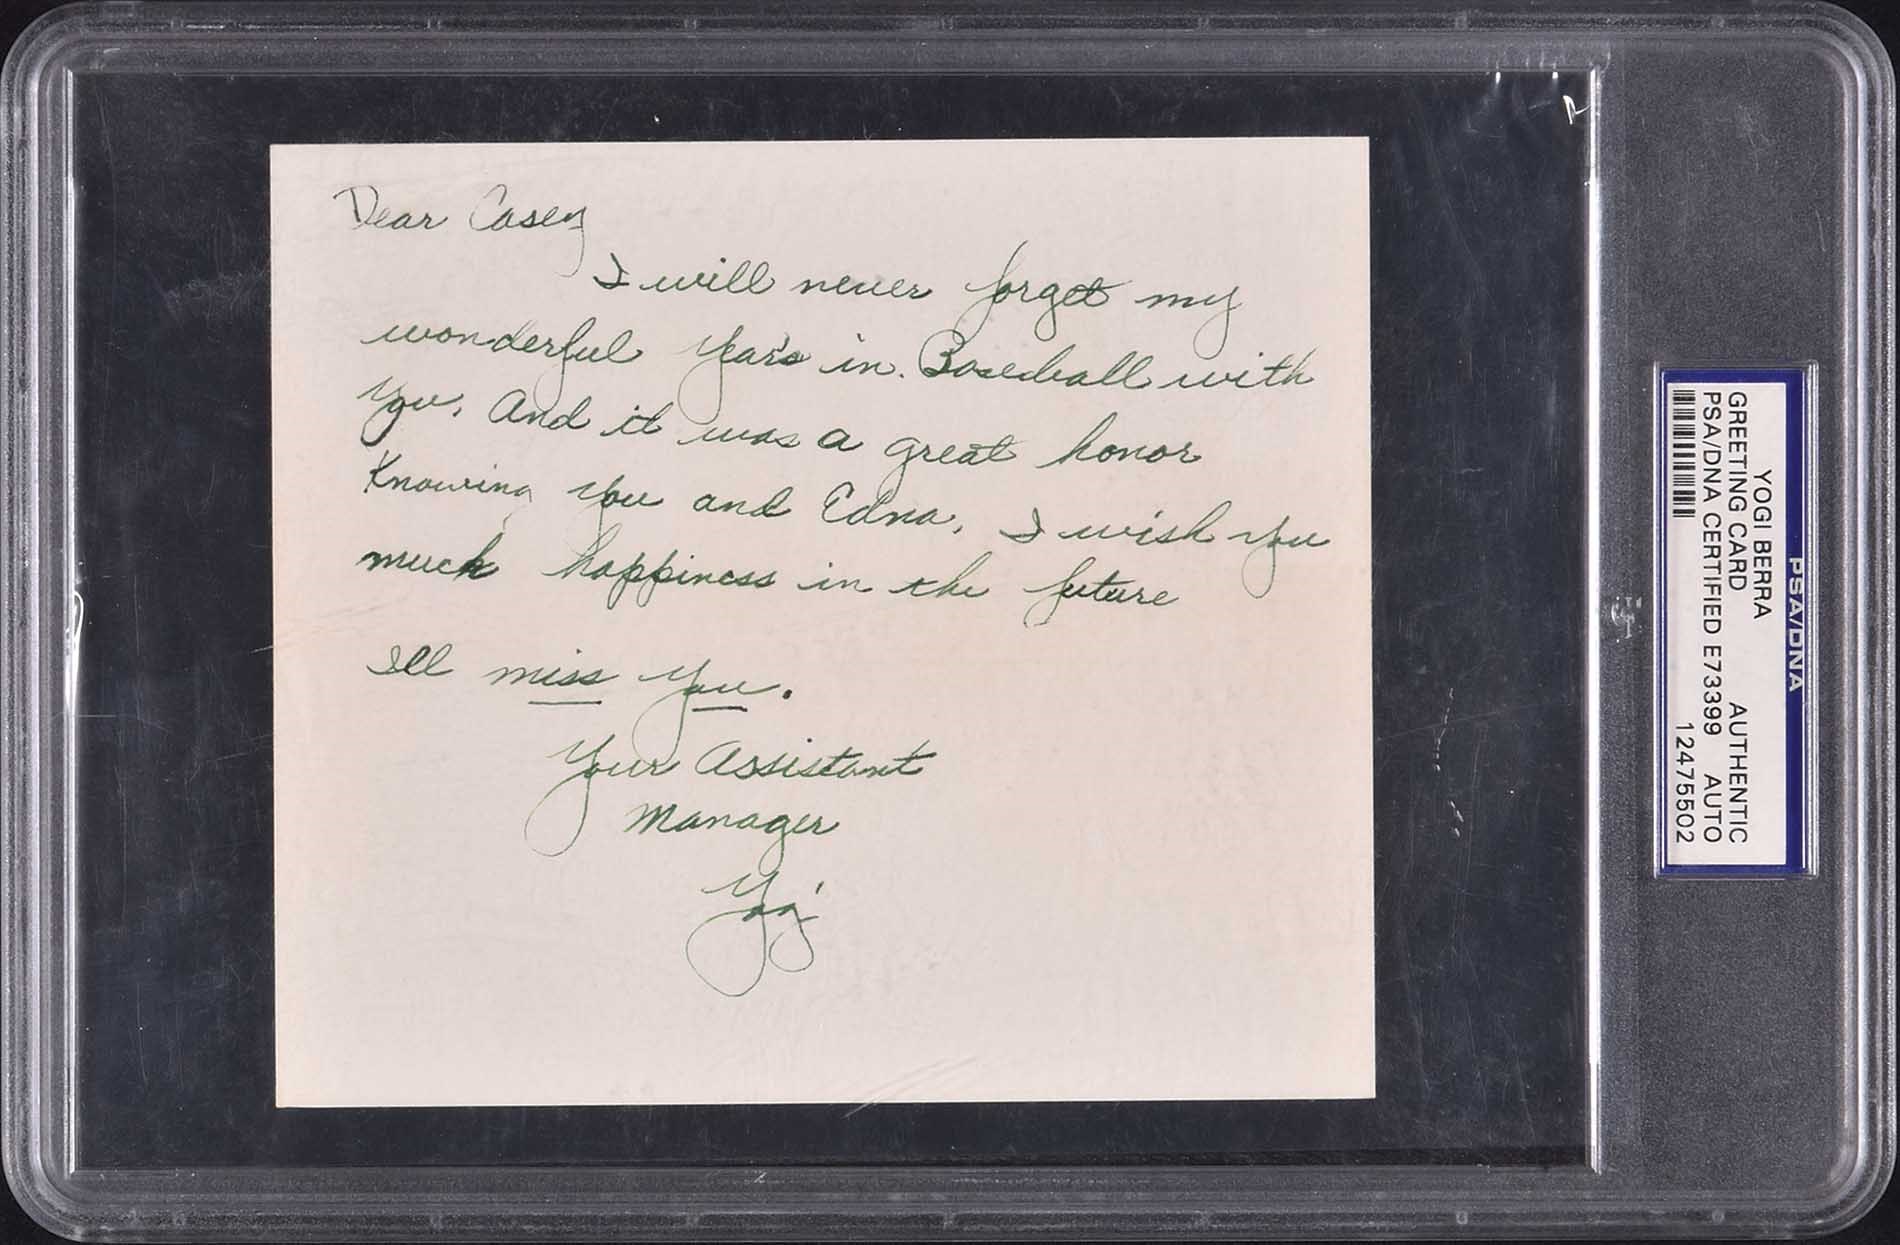 Dear Casey
I will never forget my
wonderful years in Baseball with
you. And it was a great honor
Knowing you and Edna. I wish you
much happiness in the future
Ill miss you.
Your Assistant
Manager
Yogi
PSA/DNA
YOGI BERRA
GREETING CARD AUTHENTIC
PSA/DNA CERTIFIED E73399 AUTO
12475502